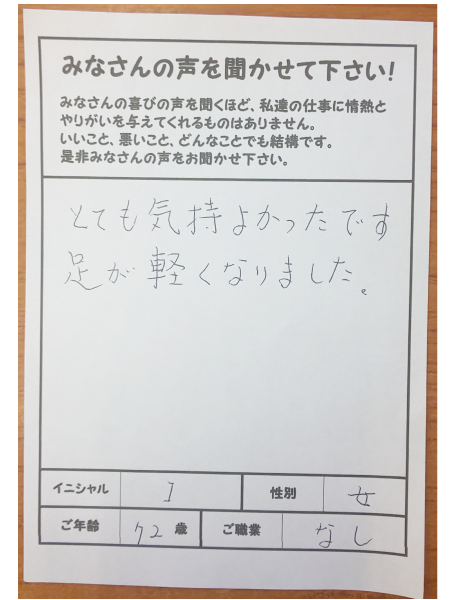 みなさんの声を聞かせて下さい!
みなさんの喜びの声を聞くほど、私達の仕事に情熱と
やりがいを与えてくれるものはありません。
いいこと、悪いこと、どんなことでも結構です。
是非みなさんの声をお聞かせ下さい。
とても気持よかったです
足が軽くなりました。
イニシャル I 性別 女
ご年齢 72 歳 ご職業 なし